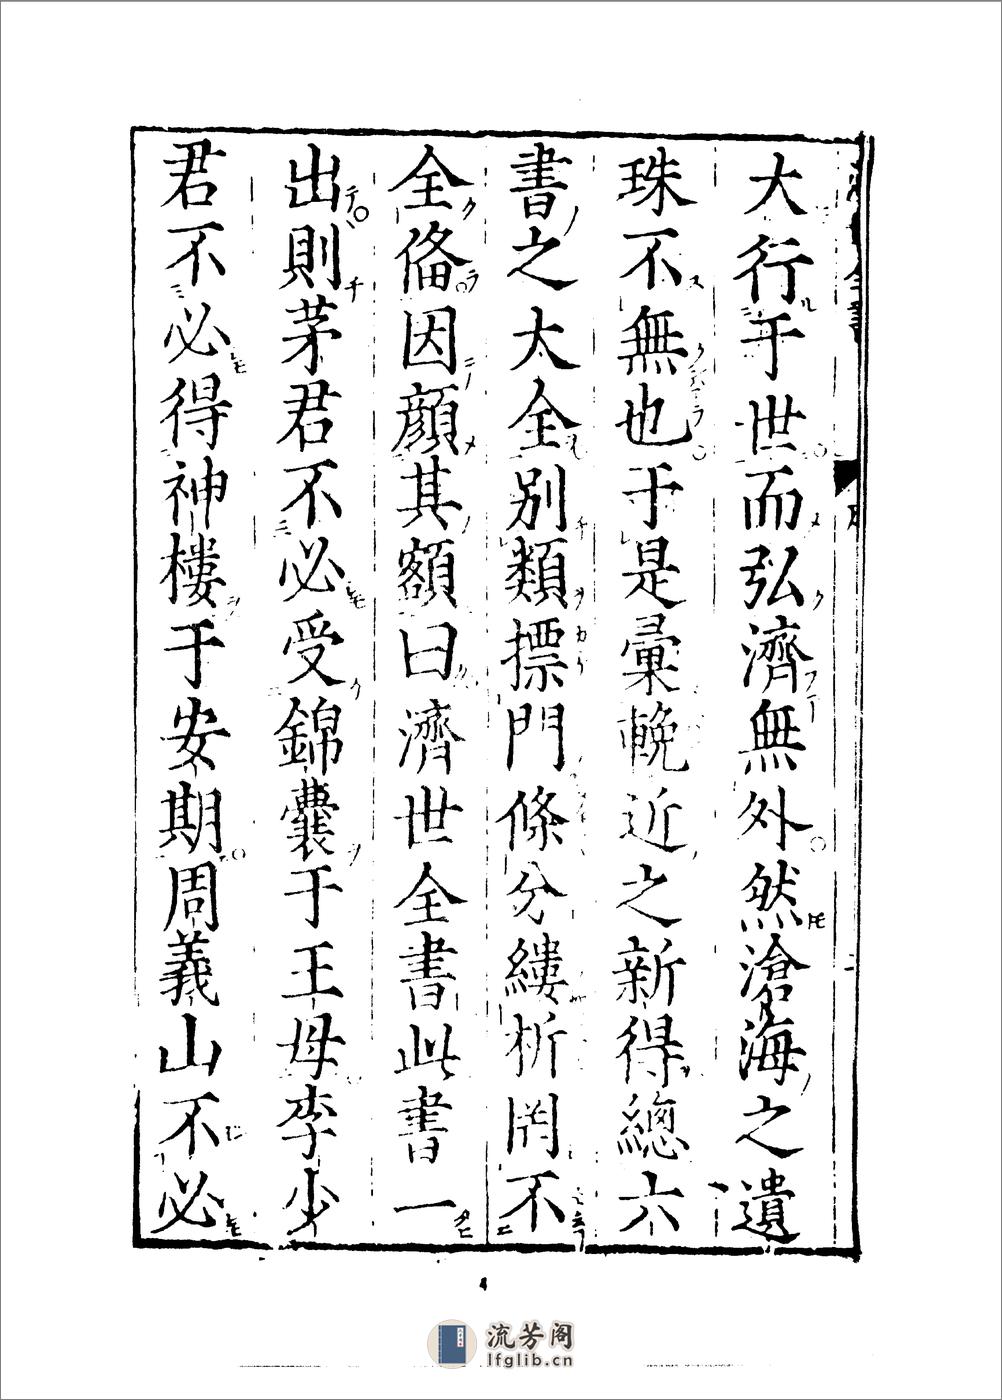 大行于世而弘濟無外然滄海之遺
珠不無也于是彙輓近之新得總六
書之大全別類摽門條分縷析罔不
全俻因顔其額曰濟世全書此書一
出則茅君不必受錦囊于王母李少
君不必得神樓于安期周義山不必
4
流芳阁
lfglib.cn